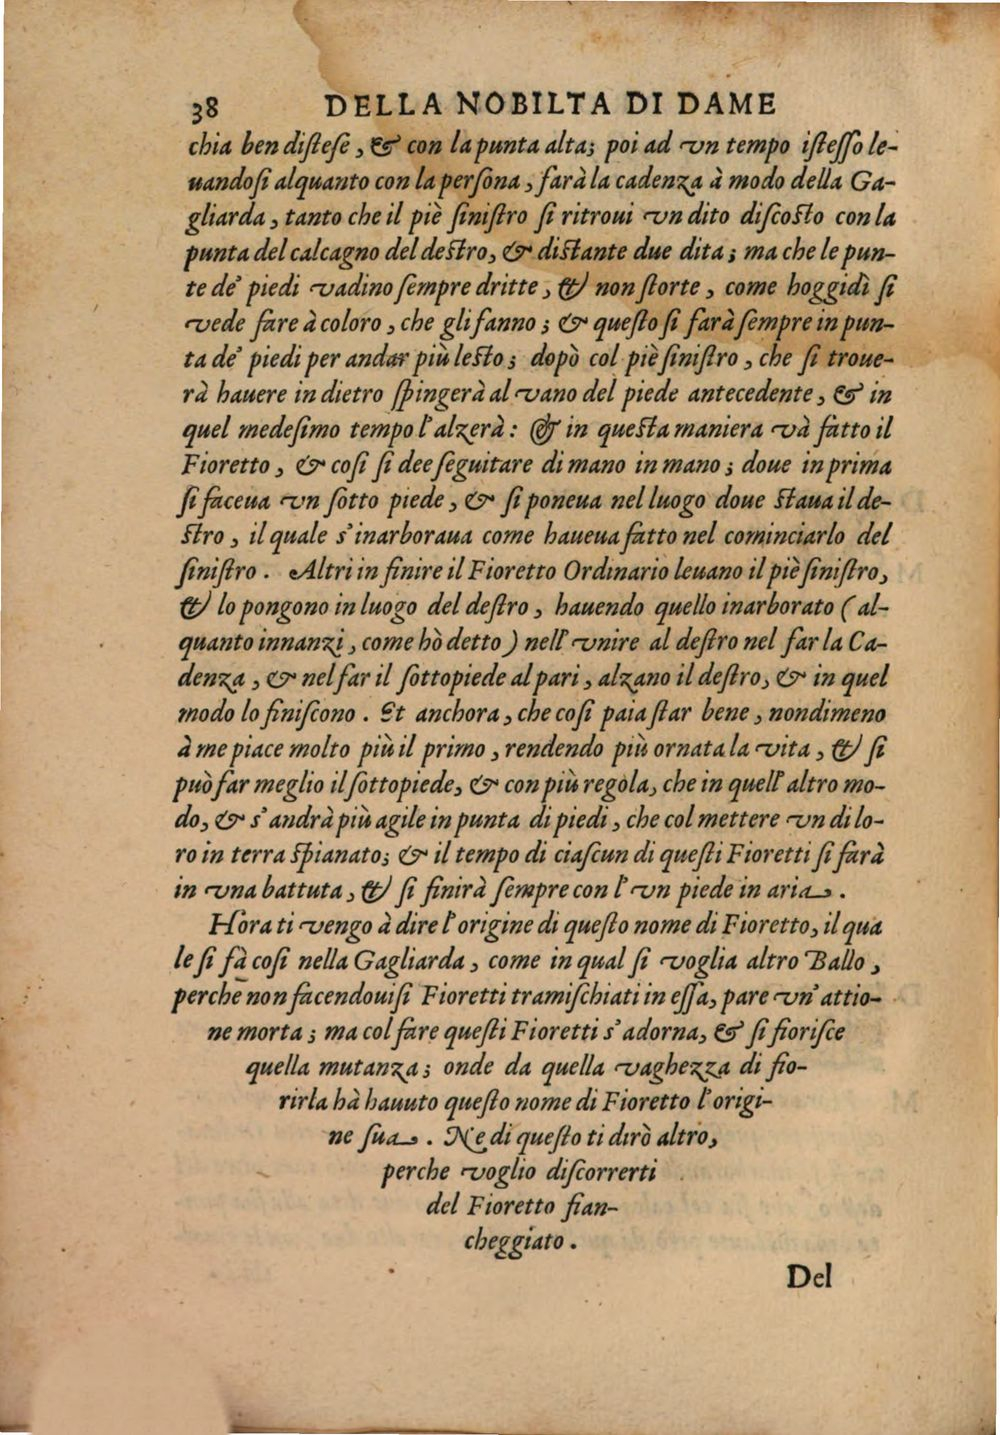 38 DELLA NOBILTA DI DAME
chia ben disteſe, & con la punta alta; poi ad vn tempo iſteſſo le-
uandoſi alquanto con la perſona, farà la cadenza à modo della Ga-
gliarda, tanto che il piè ſiniſtro ſi ritroui vn dito diſcoſto con la
punta del calcagno del deſtro, & diſtante due dita; ma che le pun-
te de' piedi vadino ſempre dritte, & non ſtorte, come hoggidì ſi
vede fare à coloro, che gli fanno; & queſto ſi farà ſempre in pun-
ta de' piedi per andar più leſto; dopò col piè ſiniſtro, che ſi troue-
rà hauere in dietro ſpingerà al vano del piede antecedente, & in
quel medeſimo tempo l'alzerà: & in queſta maniera và fatto il
Fioretto, & coſi ſi dee ſeguitare di mano in mano; doue in prima
ſi faceua vn ſotto piede, & ſi poneua nel luogo doue ſtaua il de-
ſtro, il quale s'inarboraua come haueua fatto nel cominciarlo del
ſiniſtro. Altri in finire il Fioretto Ordinario leuano il piè ſiniſtro,
& lo pongono in luogo del deſtro, hauendo quello inarborato (al-
quanto innanzi, come hò detto) nell'vnire al deſtro nel far la Ca-
denza, & nel far il ſottopiede al pari, alzano il deſtro, & in quel
modo lo finiſcono. Et anchora, che coſi paia ſtar bene, nondimeno
à me piace molto più il primo, rendendo più ornata la vita, & ſi
può far meglio il ſottopiede, & con più regola, che in quell'altro mo-
do, & s'andrà più agile in punta di piedi, che col mettere vn di lo-
ro in terra ſpianato; & il tempo di ciaſcun di queſti Fioretti ſi farà
in vna battuta, & ſi finirà ſempre con l'vn piede in aria.
Hora ti vengo à dire l'origine di queſto nome di Fioretto, il qua
le ſi fà coſi nella Gagliarda, come in qual ſi voglia altro Ballo,
perche non facendouiſi Fioretti tramiſchiati in eſſa, pare vn'attio-
ne morta; ma col fare queſti Fioretti s'adorna, & ſi fioriſce
quella mutanza; onde da quella vaghezza di fio-
rirla hà hauuto queſto nome di Fioretto l'origi-
ne ſua. Ne di queſto ti dirò altro,
perche voglio diſcorrerti
del Fioretto fian-
cheggiato.
Del